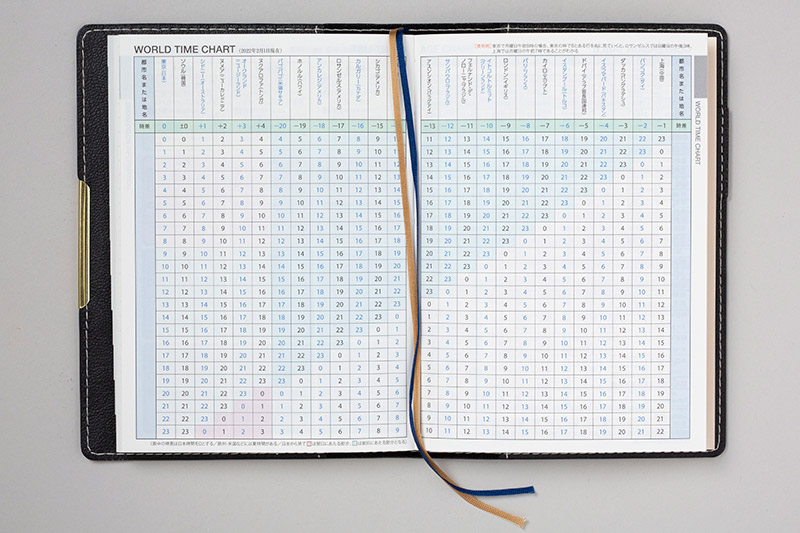 WORLD TIME CHART (2022年2月1日現在)
都市名または地名
東京(日本)
ソウル(韓国)
シドニー(オーストラリア)
ヌメア(ニューカレドニア)
オークランド(ニュージーランド)
ホノルル(ハワイ)
ロサンゼルス(アメリカ)
カルガリー(カナダ)
シカゴ(アメリカ)
時差 0 ±0 +1 +2 +3 +4 −20 −19 −18 −17 −16 −15
0 0 1 2 3 4 4 5 6 7 8 9
1 1 2 3 4 5 5 6 7 8 9 10 11
2 2 3 4 5 6 6 7 8 9 10 11 12
3 3 4 5 6 7 7 8 9 10 11 12 13
4 4 5 6 7 8 8 9 10 11 12 13 14
5 5 6 7 8 9 9 10 11 12 13 14 15
6 6 7 8 9 10 10 11 12 13 14 15 16
7 7 8 9 10 11 11 12 13 14 15 16 17
8 8 9 10 11 12 12 13 14 15 16 17 18
9 9 10 11 12 13 13 14 15 16 17 18 19
10 10 11 12 13 14 14 15 16 17 18 19 20
11 11 12 13 14 15 15 16 17 18 19 20 21
12 12 13 14 15 16 16 17 18 19 20 21 22
13 13 14 15 16 17 17 18 19 20 21 22 23
14 14 15 16 17 18 18 19 20 21 22 23 0
15 15 16 17 18 19 19 20 21 22 23 0 1
16 16 17 18 19 20 20 21 22 23 0 1 2
17 17 18 19 20 21 21 22 23 0 1 2 3
18 18 19 20 21 22 22 23 0 1 2 3 4
19 19 20 21 22 23 23 0 1 2 3 4 5
20 20 21 22 23 0 0 1 2 3 4 5 6
21 21 22 23 0 1 1 2 3 4 5 6 7
22 22 23 0 1 2 2 3 4 5 6 7 8
23 23 0 1 2 3 3 4 5 6 7 8 9
カイロ(エジプト)
ロンドン(イギリス)
パリ(フランス)
ダッカ(バングラデシュ)
バンコク(タイ)
上海(中国)
都市名または地名
−13 −12 −11 −10 −9 −8 −7 −6 −5 −4 −3 −2 −1 時差
11 12 13 14 15 16 17 18 19 20 21 22 23
12 13 14 15 16 17 18 19 20 21 22 23 0
13 14 15 16 17 18 19 20 21 22 23 0 1
14 15 16 17 18 19 20 21 22 23 0 1 2
15 16 17 18 19 20 21 22 23 0 1 2 3
16 17 18 19 20 21 22 23 0 1 2 3 4
17 18 19 20 21 22 23 0 1 2 3 4 5
18 19 20 21 22 23 0 1 2 3 4 5 6
19 20 21 22 23 0 1 2 3 4 5 6 7
20 21 22 23 0 1 2 3 4 5 6 7 8
21 22 23 0 1 2 3 4 5 6 7 8 9
22 23 0 1 2 3 4 5 6 7 8 9 10
23 0 1 2 3 4 5 6 7 8 9 10 11
0 1 2 3 4 5 6 7 8 9 10 11 12
1 2 3 4 5 6 7 8 9 10 11 12 13
2 3 4 5 6 7 8 9 10 11 12 13 14
3 4 5 6 7 8 9 10 11 12 13 14 15
4 5 6 7 8 9 10 11 12 13 14 15 16
5 6 7 8 9 10 11 12 13 14 15 16 17
6 7 8 9 10 11 12 13 14 15 16 17 18
7 8 9 10 11 12 13 14 15 16 17 18 19
8 9 10 11 12 13 14 15 16 17 18 19 20
9 10 11 12 13 14 15 16 17 18 19 20 21
10 11 12 13 14 15 16 17 18 19 20 21 22
WORLD TIME CHART